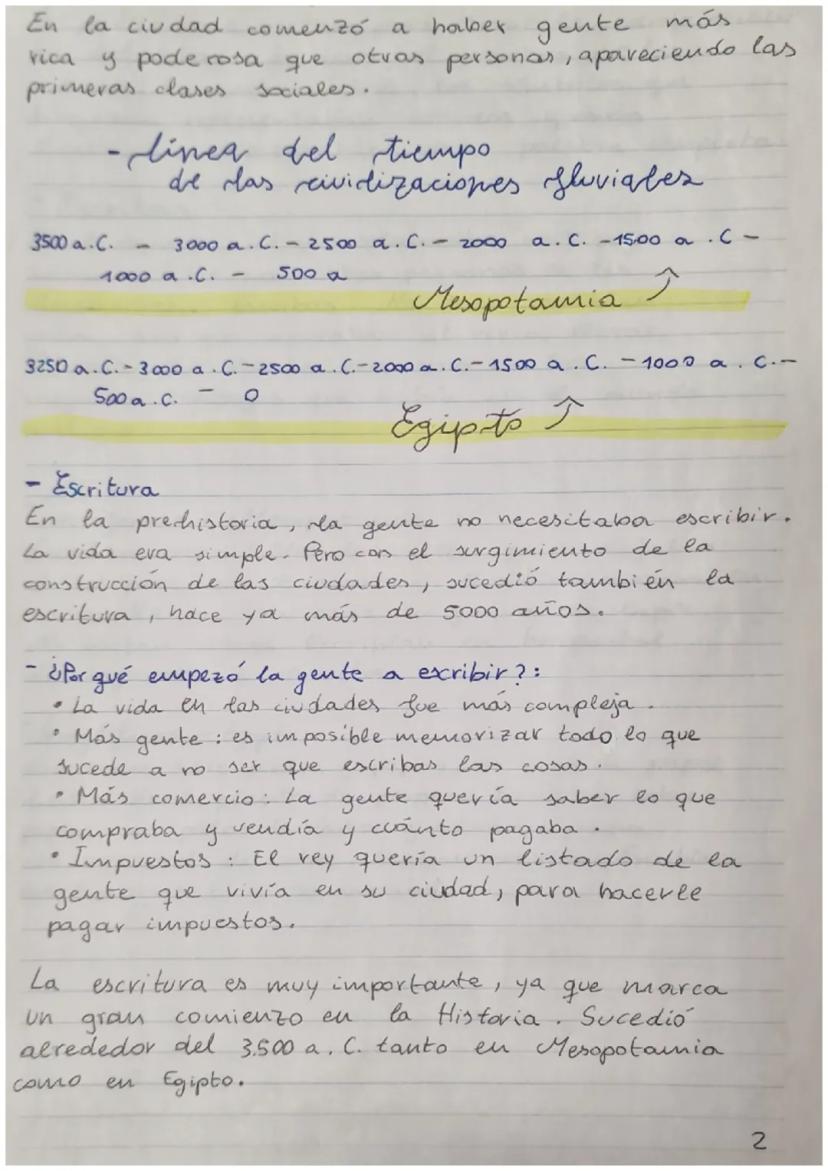 En la ciudad comenzó a haber gente más
rica y poderosa que otras personas, apareciendo las
primeras clases sociales.
- línea del tiempo
de las civilizaciones fluviales
3500 a.C. - 3000 a.C. - 2500 a.C. - 2000 a.C. - 1500 a.C -
1000 a.C. - 500 a
Mesopotamia ↑
3250 a.C. - 3000 a.C. - 2500 a.C. - 2000 a.C. - 1500 a.C. - 1000 a.C. -
500 a.C. - 0
Egipto ↑
- Escritura
En la prehistoria, la gente no necesitaba escribir.
La vida era simple. Pero con el surgimiento de la
construcción de las ciudades, sucedió también la
escritura, hace ya más de 5000 años.
- ¿Por qué empezó la gente a escribir?:
• La vida en las ciudades fue más compleja.
• Más gente: es imposible memorizar todo lo que
sucede a no ser que escribas las cosas.
• Más comercio: La gente quería saber lo que
compraba y vendía y cuánto pagaba.
• Impuestos: El rey quería un listado de la
gente que vivía en su ciudad, para hacerle
pagar impuestos.
La escritura es muy importante, ya que marca
un gran comienzo en la Historia. Sucedió
alrededor del 3.500 a.C. tanto en Mesopotamia
como en Egipto.
2